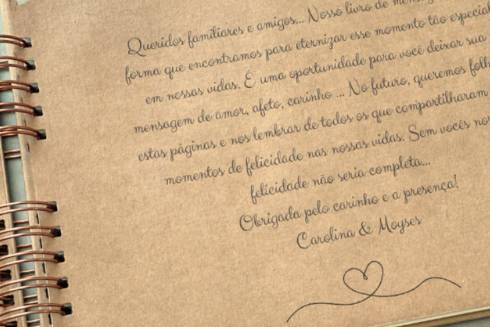 Queridos familiares e amigos... Nosso livro de
forma que encontramos para eternizar esse momento tão especial
em nossas vidas. É uma oportunidade para você deixar sua
mensagem de amor, afeto, carinho ... No futuro, queremos
estas páginas e nos lembrar de todos os que compartilharam
momentos de felicidade nas nossas vidas. Sem vocês
felicidade não seria completa...
Obrigada pelo carinho e a presença!
Carolina & Moyses